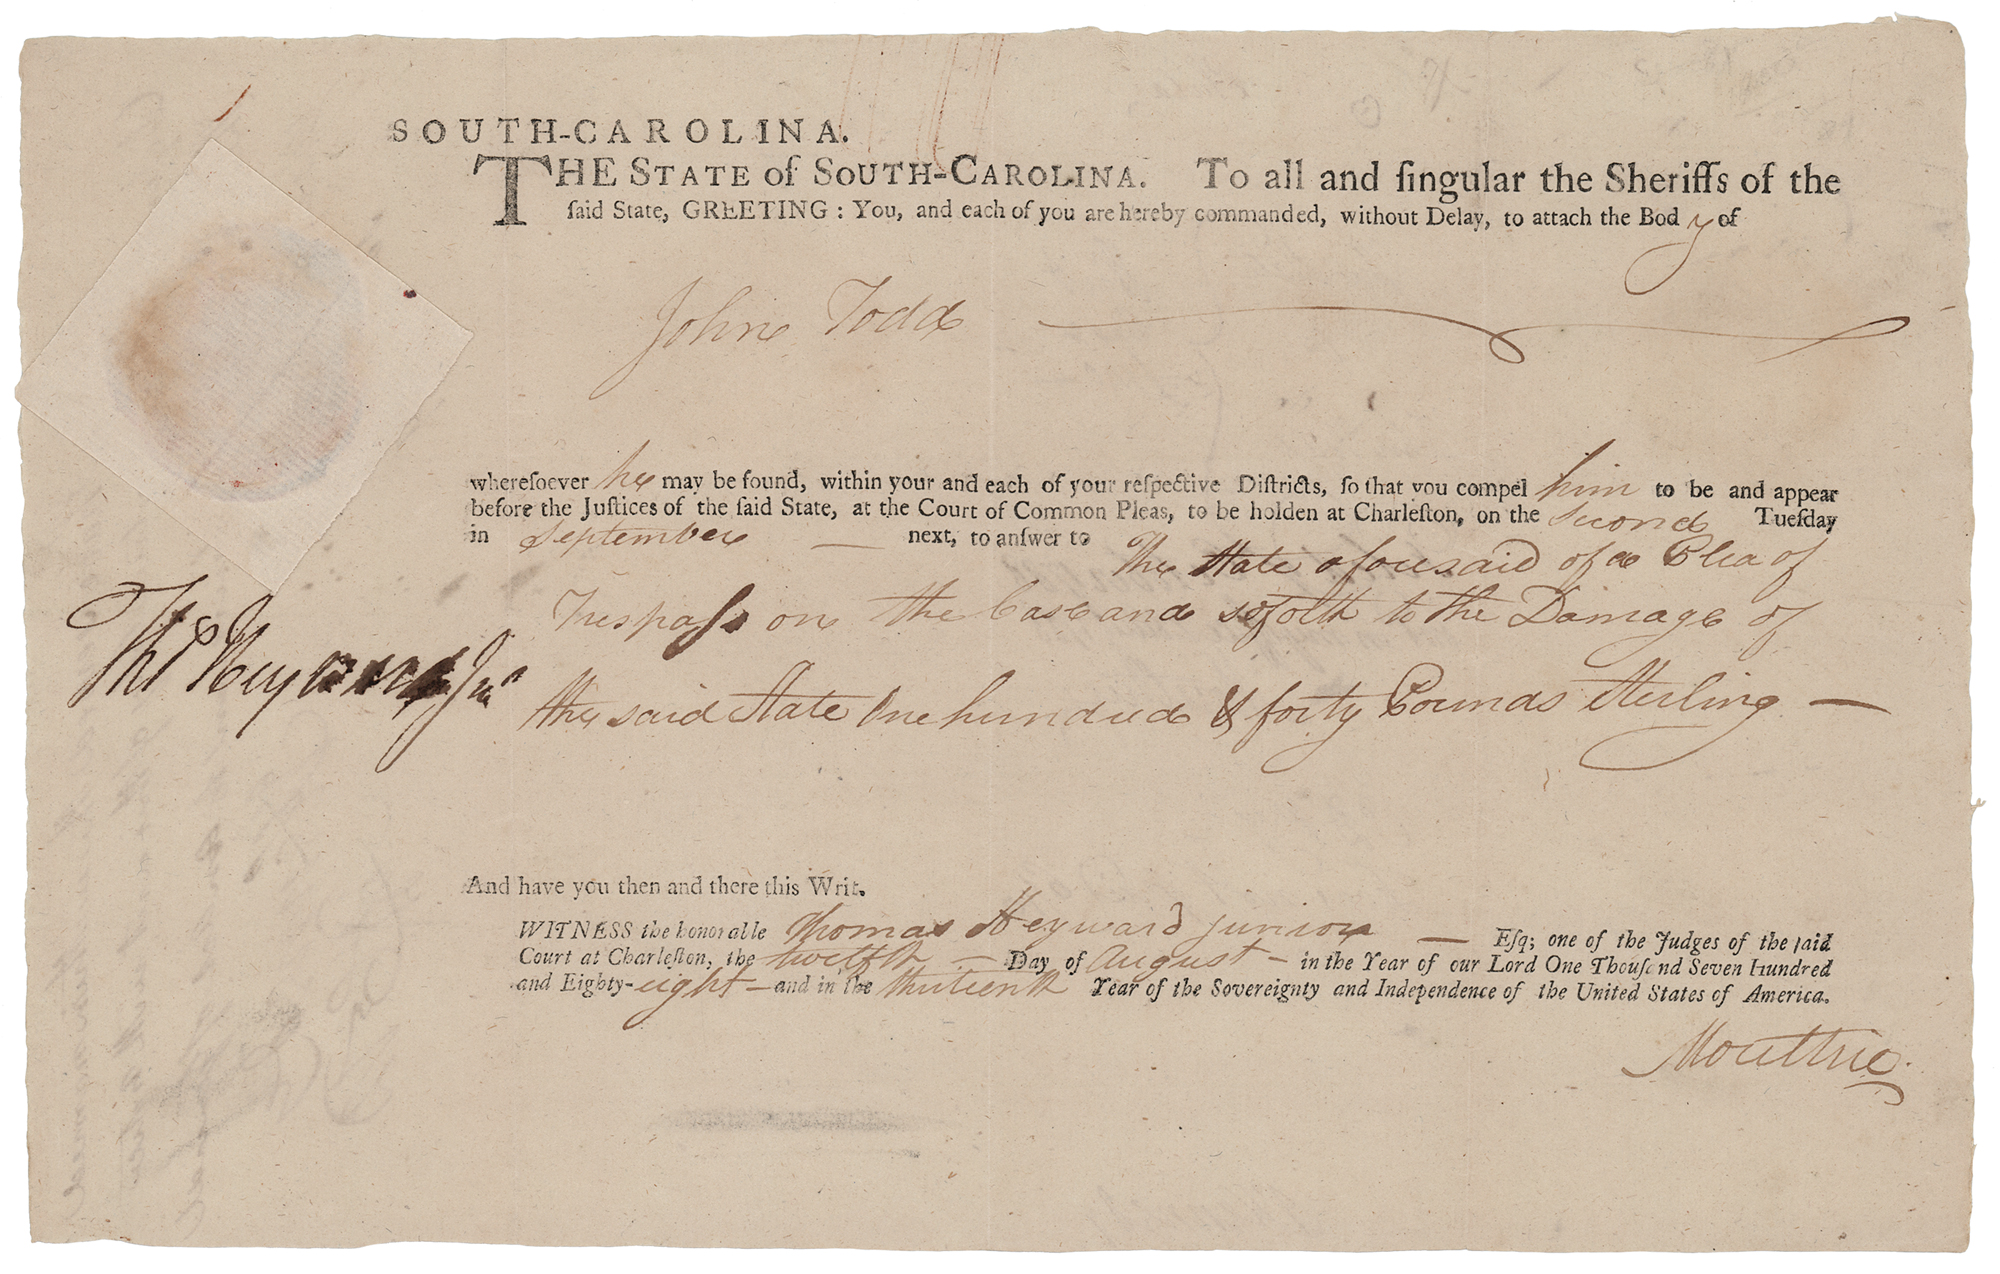 SOUTH-CAROLINA.
THE STATE of SOUTH-CAROLINA. To all and ſingular the Sheriffs of the
ſaid State, GREETING: You, and each of you are hereby commanded, without Delay, to attach the Body of
John Todd
whereſoever he may be found, within your and each of your reſpective Diſtricts, ſo that you compel him to be and appear
before the Juſtices of the ſaid State, at the Court of Common Pleas, to be holden at Charleſton, on the second Tueſday
in September — next, to anſwer to
The State aforesaid of a Plea of
Treſpaſs on the Case and soforth to the Damage of
Thos Heyward Junr
the said State One hundred & forty Pounds Sterling —
And have you then and there this Writ.
WITNESS the honorable Thomas Heyward junior — Eſq; one of the Judges of the ſaid
Court at Charleſton, the twelfth — Day of August — in the Year of our Lord One Thouſand Seven Hundred
and Eighty-eight — and in the thirteenth Year of the Sovereignty and Independence of the United States of America.
Moultrie.